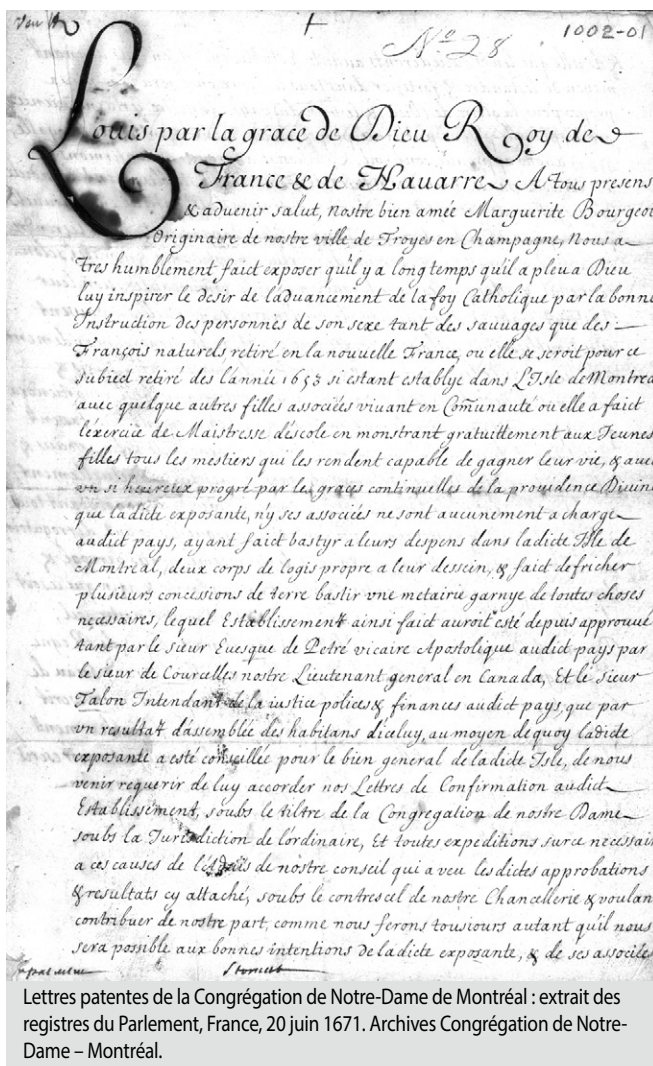 +
N° 28
1002-01
Louis par la grace de Dieu Roy de
France & de Nauarre A tous presens
& aduenir salut, nostre bien amée Marguerite Bourgeoi
Originaire de nostre ville de Troyes en Champagne, Nous a
tres humblement faict exposer quil y a long temps quil a pleu a Dieu
luy inspirer le desir de laduancement de la foy Catholique par la bonne
Instruction des personnes de son sexe tant des sauuages que des
François naturels retiré en la nouuelle France, ou elle se seroit pour ce
subiect retiré des l'année 1653 si estant establye dans L'Isle de Montrea
auec quelque autres filles associées viuant en Com̃unauté ou elle a faict
l'exercice de Maistresse d'escole en monstrant gratuittement aux Jeunes
filles tous les mestiers qui les rendent capable de gagner leur vie, & auec
vn si heureux progré par les graces continuelles de la prouidence Diuine
que ladicte exposante, n'y ses associées ne sont aucunement a charge
audict pays, ayant faict bastyr a leurs despens dans ladicte Isle de
Montréal, deux corps de logis propre a leur dessein, & faict defricher
plusieurs concessions de terre bastir vne metairie garnye de toutes choses
necessaires, lequel Establissement ainsi faict auroit esté depuis approuué
tant par le sieur Euesque de Petré vicaire Apostolique audict pays par
le sieur de Courcelles nostre Lieutenant general en Canada, Et le sieur
Talon Intendant de la iustice polices & finances audict pays, que par
vn resultat d'assemblée des habitans d'iceluy, au moyen de quoy ladicte
exposante a esté conseillée pour le bien general de ladicte Isle, de nous
venir requerir de luy accorder nos Lettres de Confirmation audict
Establissement, soubs le tiltre de la Congregation de nostre Dame
soubs la Jurisdiction de l'ordinaire, Et toutes expeditions surce necessair
a ces causes de l'Aduis de nostre conseil qui a veu les dictes approbations
& resultats cy attaché, soubs le contrescel de nostre Chancellerie & voulan
contribuer de nostre part, comme nous ferons tousiours autant qu'il nous
sera possible aux bonnes intentions de ladicte exposante, & de ses associées
Lettres patentes de la Congrégation de Notre-Dame de Montréal : extrait des
registres du Parlement, France, 20 juin 1671. Archives Congrégation de Notre-
Dame – Montréal.